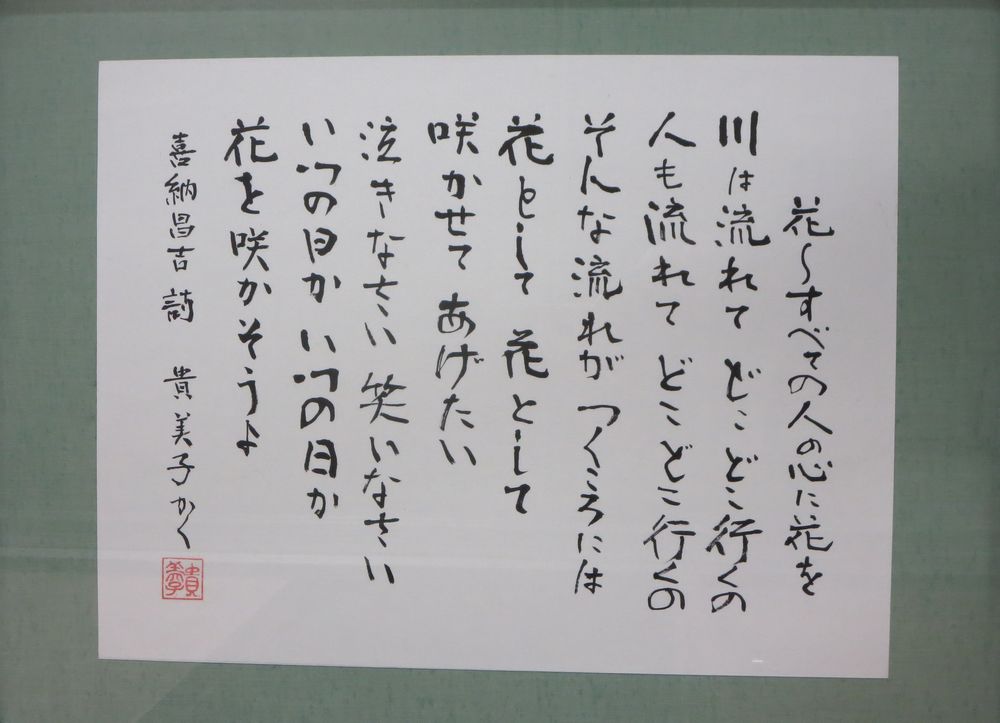 花〜すべての人の心に花を
川は流れて どこどこ行くの
人も流れて どこどこ行くの
そんな流れが つくころには
花として 花として
咲かせて あげたい
泣きなさい 笑いなさい
いつの日か いつの日か
花を咲かそうよ
喜納昌吉 詩 貴美子かく